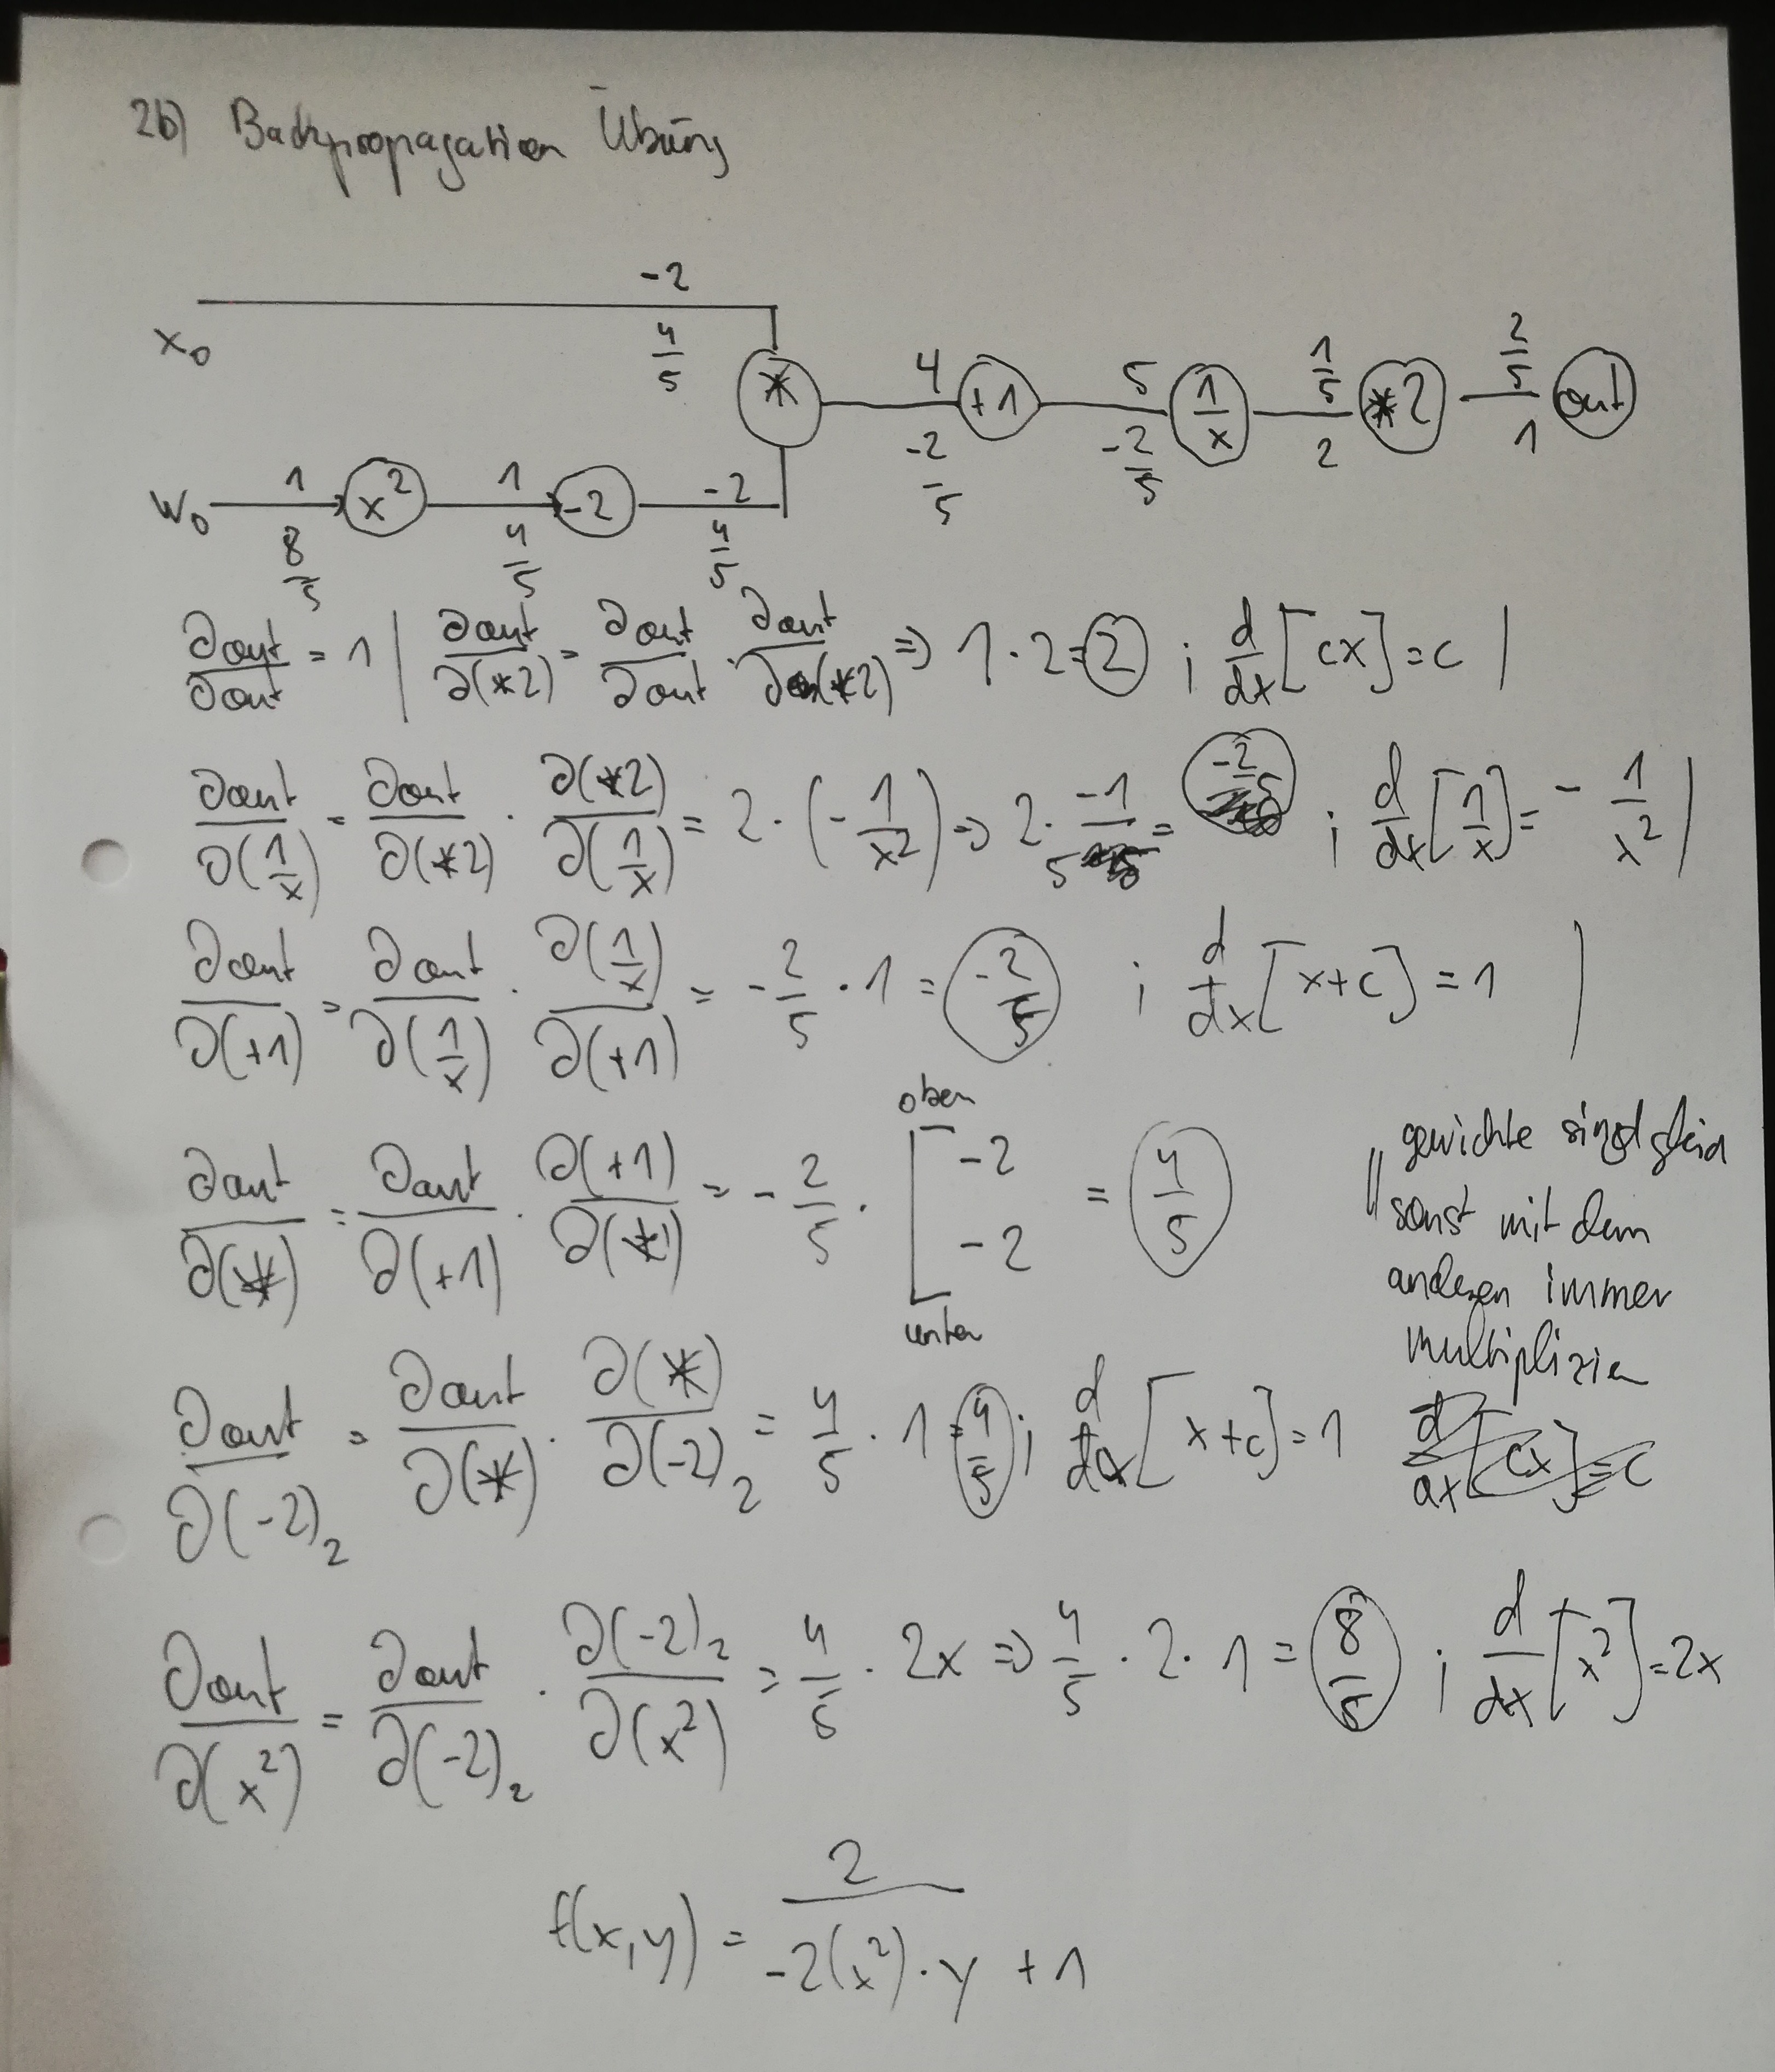 2b) Backpropagation Übung
-2
x₀ 4/5 * 4 +1 5 1/x 1/5 *2 2/5 out
-2/5 -2/5 2 1
w₀ 1 x² 1 -2 -2
8/5 4/5 4/5
∂out/∂out = 1 | ∂out/∂(*2) = ∂out/∂out · ∂out/∂(*2) => 1 · 2 = 2 ; d/dx [cx] = c |
∂out/∂(1/x) = ∂out/∂(*2) · ∂(*2)/∂(1/x) = 2 · (- 1/x²) => 2 · -1/5 = -2/5 ; d/dx [1/x] = - 1/x² |
∂out/∂(+1) = ∂out/∂(1/x) · ∂(1/x)/∂(+1) = - 2/5 · 1 = -2/5 ; d/dx [x+c] = 1 |
oben
∂out/∂(*) = ∂out/∂(+1) · ∂(+1)/∂(*) = - 2/5 · [ -2 -2 = 4/5
unten
" gewichte sind gleich
sonst mit dem
anderen immer
multiplizien
∂out/∂(-2)₂ = ∂out/∂(*) · ∂(*)/∂(-2)₂ = 4/5 · 1 = 4/5 ; d/dx [x+c] = 1 d/dx [cx] = c
∂out/∂(x²) = ∂out/∂(-2)₂ · ∂(-2)₂/∂(x²) = 4/5 · 2x => 4/5 · 2 · 1 = 8/5 ; d/dx [x²] = 2x
f(x,y) = 2/(-2(x²) · y + 1)